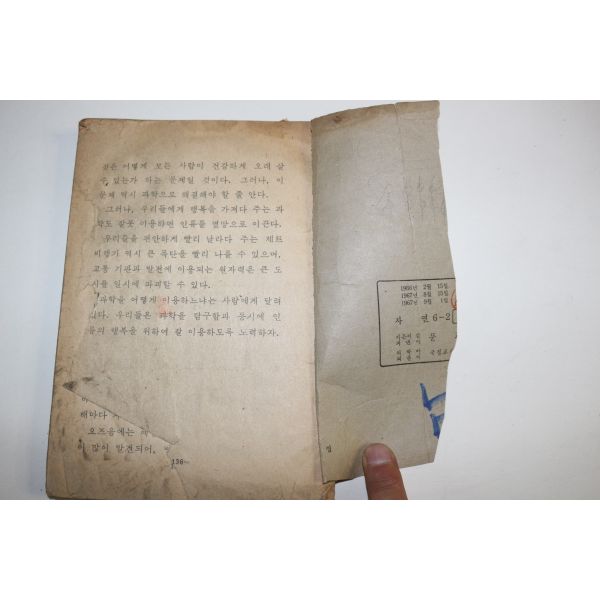 것은 어떻게 모든 사람이 건강하게 오래 살
수 있는가 하는 문제일 것이다. 그러나, 이
문제 역시 과학으로 해결해야 할 줄 안다.
그러나, 우리들에게 행복을 가져다 주는 과
학도 잘못 이용하면 인류를 멸망으로 이끈다.
우리들을 편안하게 빨리 날라다 주는 제트
비행기 역시 큰 폭탄을 빨리 나를 수 있으며,
교통 기관과 발전에 이용되는 원자력은 큰 도
시를 일시에 파괴할 수 있다.
과학을 어떻게 이용하느냐는 사람에게 달려
있다. 우리들은 과학을 탐구함과 동시에 인
들의 행복을 위하여 잘 이용하도록 노력하자.
해마다
오즈음에는
이 많이 발견되어,
138
1966년 2월 15일
1967년 8월 10일
1967년 9월 1일
자 연 6-2
문
국정교